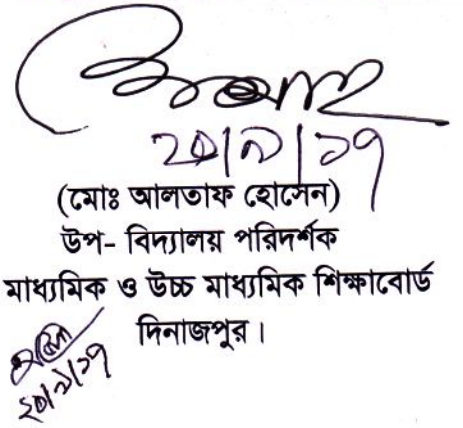 ২০|৯|১৭
(মোঃ আলতাফ হোসেন)
উপ- বিদ্যালয় পরিদর্শক
মাধ্যমিক ও উচ্চ মাধ্যমিক শিক্ষাবোর্ড
দিনাজপুর।
২০|৯|১৭